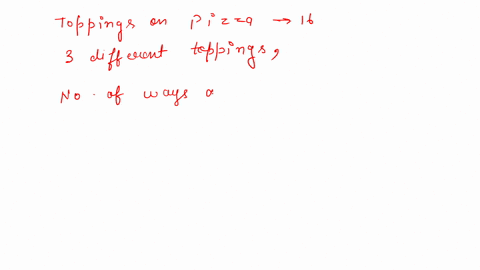 Toppings on Pizza → 16
3 different toppings,
No. of ways a